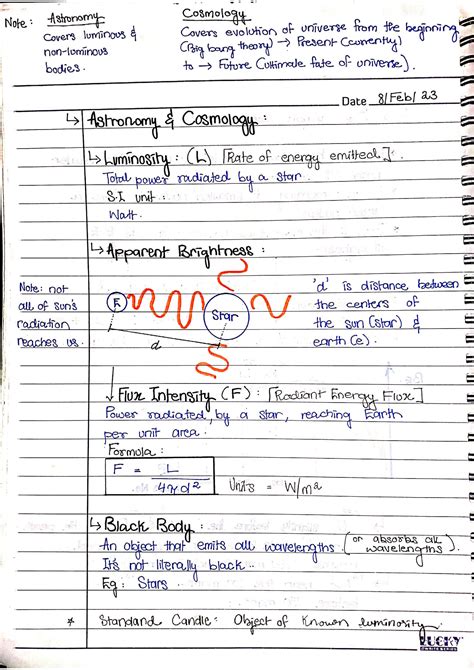 Note : Astronomy
Covers luminous &
non-luminous
bodies.
Cosmology
Covers evolution of universe from the beginning
(Big bang theory) → Present (currently)
to → Future (Ultimate fate of universe).
Date 8/Feb/23
↳ Astronomy & Cosmology :
↳ Luminosity : (L) [Rate of energy emitted]
Total power radiated by a star.
S.I unit :
Watt.
↳ Apparent Brightness :
Note: not
all of sun's
radiation
reaches us.
E
Star
d
'd' is distance between
the centers of
the sun (star) &
earth (e).
↓ Flux Intensity (F) : [Radiant Energy Flux]
Power radiated by a star, reaching Earth
per unit area.
Formula :
F = L
4πd²
Units = W/m²
↳ Black Body :
An object that emits all wavelengths. (or absorbs all
wavelengths)
It's not literally black.
Eg : Stars
* Standard Candle: Object of Known luminosity.
LUCKY